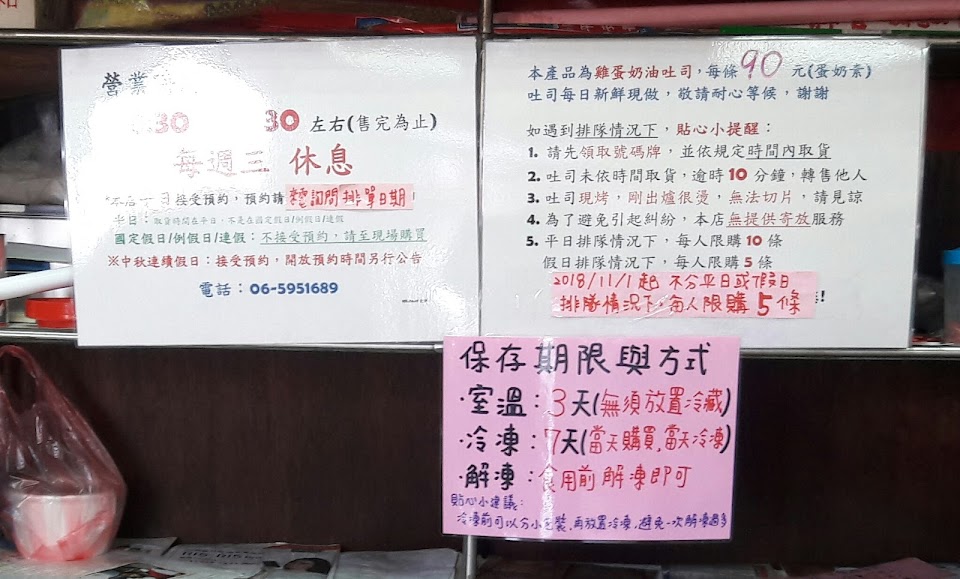 營業
30 30 左右(售完為止)
每週三 休息
本店 日接受預約，預約請 詢問排單日期!
平日：取貨時間在平日，不是在國定假日/例假日/連假
國定假日/例假日/連假：不接受預約，請至現場購買
※中秋連續假日：接受預約，開放預約時間另行公告
電話：06-5951689
本產品為雞蛋奶油吐司，每條 90 元(蛋奶素)
吐司每日新鮮現做，敬請耐心等候，謝謝
如遇到排隊情況下，貼心小提醒：
1. 請先領取號碼牌，並依規定時間內取貨
2. 吐司未依時間取貨，逾時10分鐘，轉售他人
3. 吐司現烤，剛出爐很燙，無法切片，請見諒
4. 為了避免引起糾紛，本店無提供寄放服務
5. 平日排隊情況下，每人限購10條
假日排隊情況下，每人限購5條
2018/11/1起 不分平日或假日
排隊情況下，每人限購5條 !
保存期限與方式
·室溫：3天(無須放置冷藏)
·冷凍：7天(當天購買,當天冷凍)
·解凍：食用前解凍即可
貼心小建議：
冷凍前可以分小包裝,再放置冷凍,避免一次解凍過多